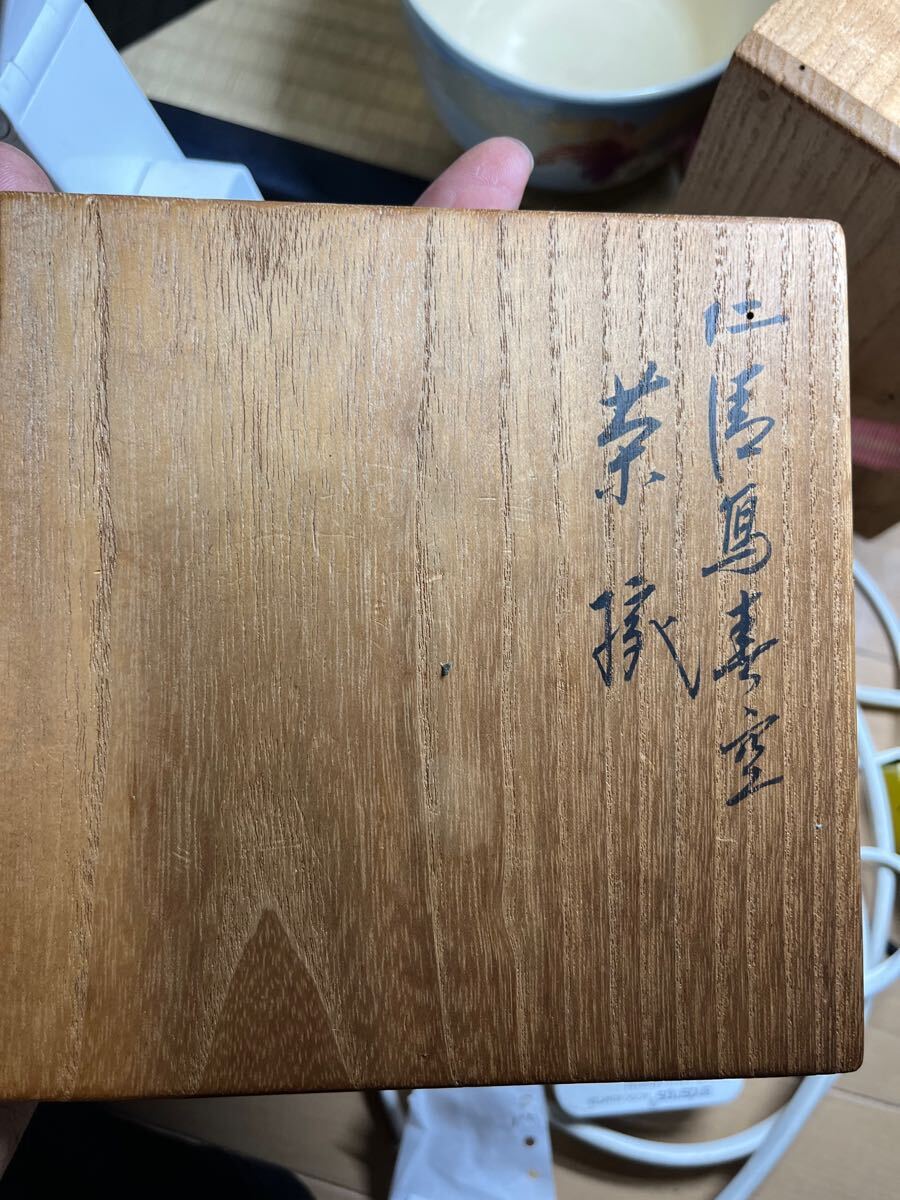 仁清写春空
茶碗